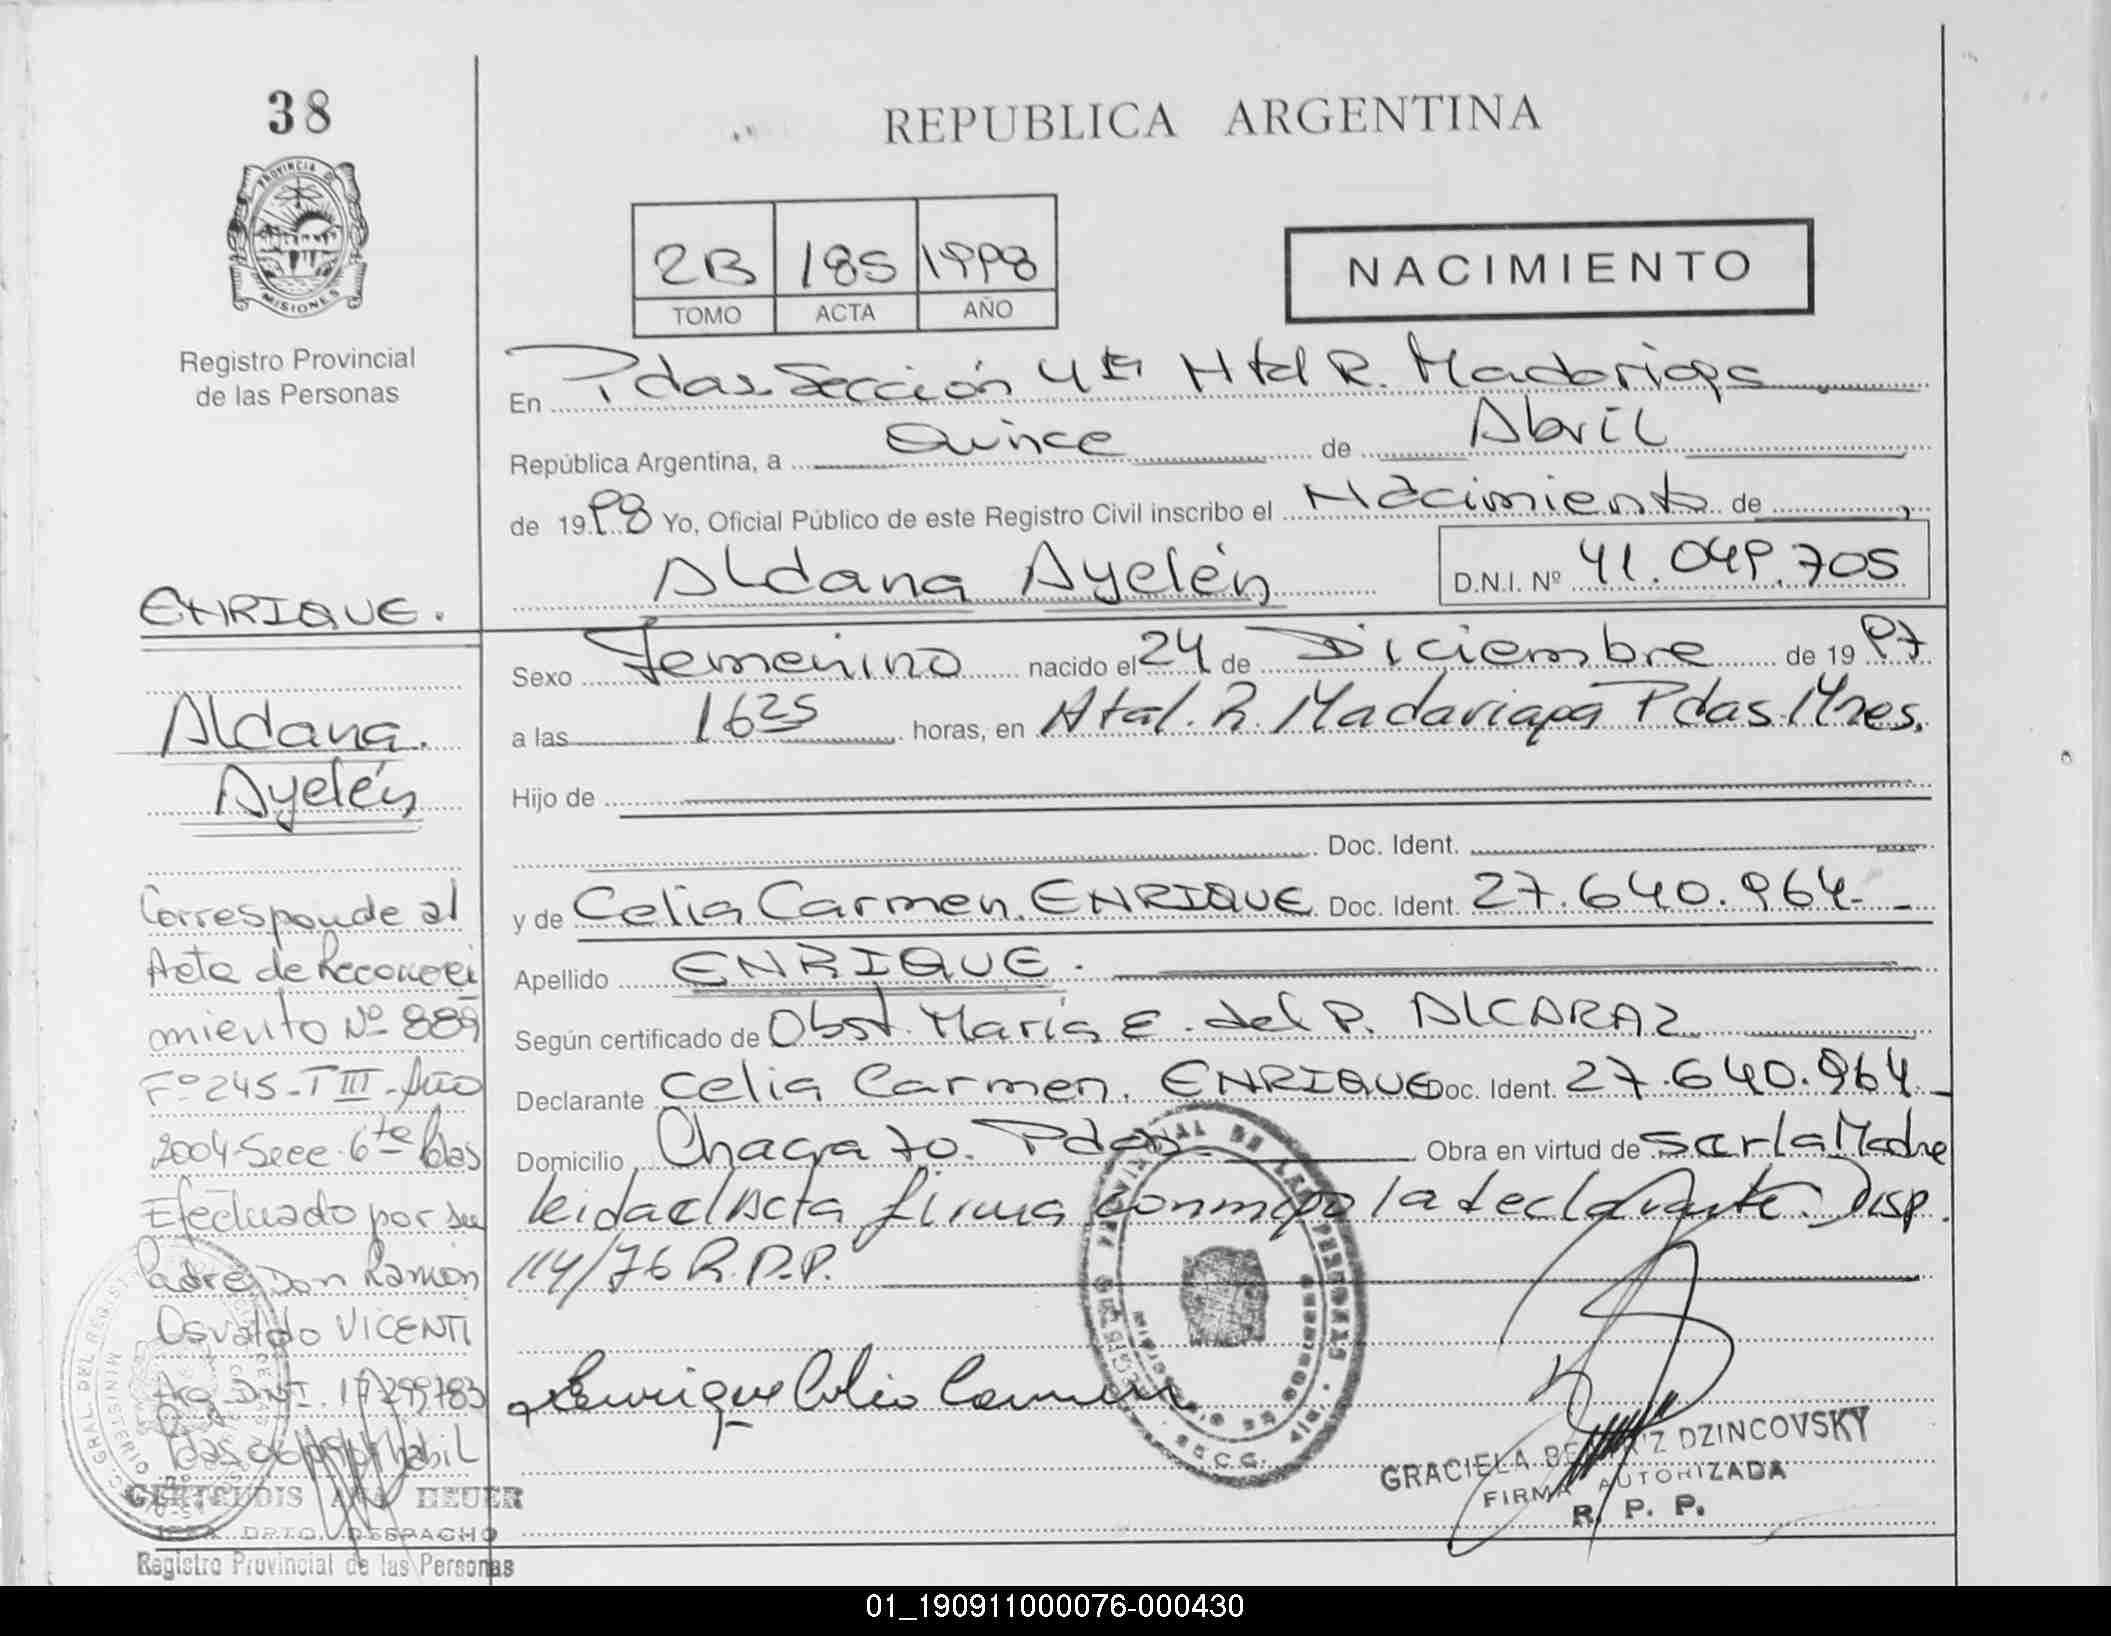 38
PROVINCIA DE
MISIONES
Registro Provincial
de las Personas
REPUBLICA ARGENTINA
2B 185 1998
TOMO ACTA AÑO
NACIMIENTO
En Pdas. Sección 4ta Htal R. Madariaga
República Argentina, a Quince de Abril
de 1998 Yo, Oficial Público de este Registro Civil inscribo el Nacimiento de
Aldana Ayelén D.N.I. Nº 41.049.705
Sexo Femenino nacido el 24 de Diciembre de 1997
a las 1625 horas, en Htal. R. Madariaga Pdas. Mnes.
Hijo de
Doc. Ident.
y de Celia Carmen. ENRIQUE Doc. Ident. 27.640.964-
Apellido ENRIQUE.
Según certificado de Obst. María E. del P. ALCARAZ
Declarante Celia Carmen. ENRIQUE Doc. Ident. 27.640.964
Domicilio Chacra 70. Pdas. Obra en virtud de ser la Madre
leida el Acta firma conmigo la declarante. Disp.
114/76 R.P.P.
Enrique Celia Carmen
GRACIELA BEATRIZ DZINCOVSKY
FIRMA AUTORIZADA
R. P. P.
ENRIQUE.
Aldana.
Ayelén
Corresponde al
Acta de Reconoci
miento Nº 889
Fº 245-T III-Año
2004-Secc. 6ta Pdas
Efectuado por su
Padre Don Ramón
Osvaldo VICENTI
Arg D.N.I. 17299783
Pdas
GERTRUDIS ANA HEUER
JEFA DPTO. DESPACHO
Registro Provincial de las Personas
01_190911000076-000430